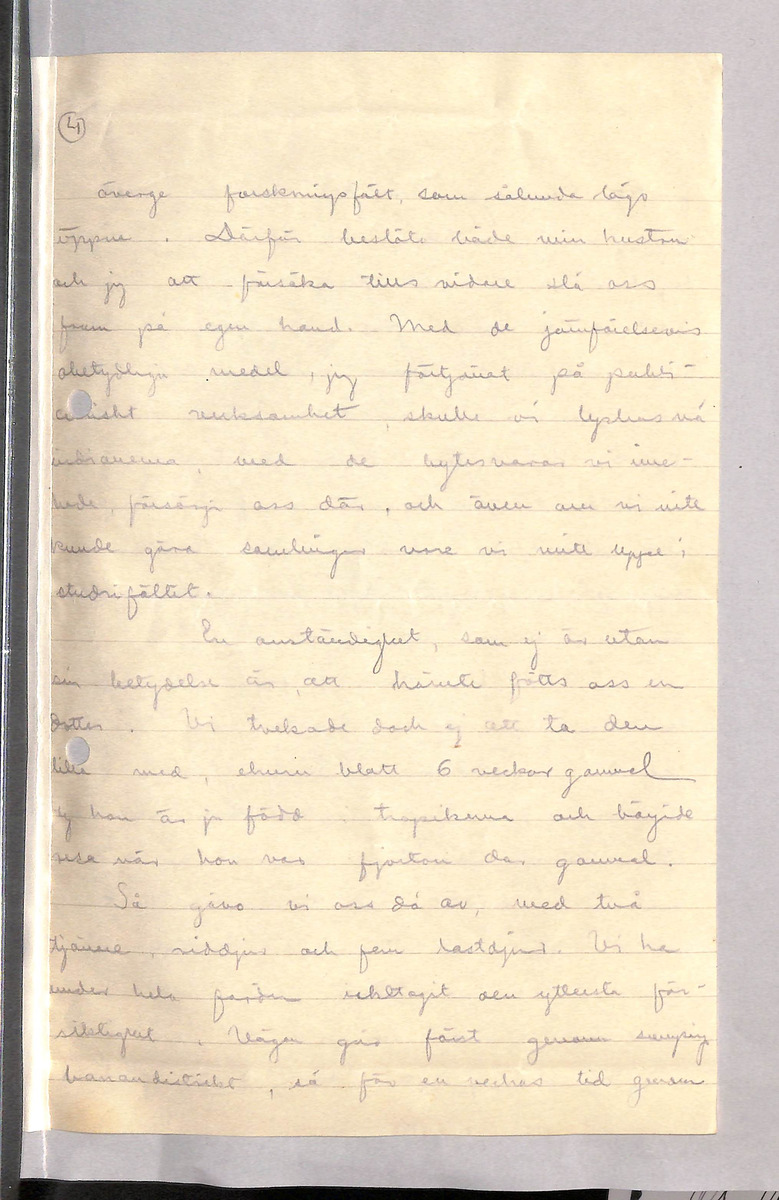 4
överge forskningsfält, som sålunda lågo
öppna. Därför beslöto både min hustru
och jag att försöka tills vidare slå oss
fram på egen hand. Med de jämförelsevis
obetydliga medel, jag förtjänat på publi-
cistisk verksamhet, skulle vi lyckas nå
indianerna, med de bytesvaror vi inne-
hade, försörja oss där, och även om vi inte
kunde göra samlingar vore vi mitt uppe i
studiefältet.
En omständighet, som ej är utan
sin betydelse är, att härute fötts oss en
dotter. Vi tvekade dock ej att ta den
lilla med, ehuru blott 6 veckor gammal
ty hon är ju född i tropikerna och började
resa när hon var fjorton dar gammal.
Så gåvo vi oss då av, med två
tjänare, riddjur och fem lastdjur. Vi ha
under hela färden iakttagit den yttersta för-
siktighet. Vägen går först genom sumpig
banandistrikt, så för en veckas tid genom